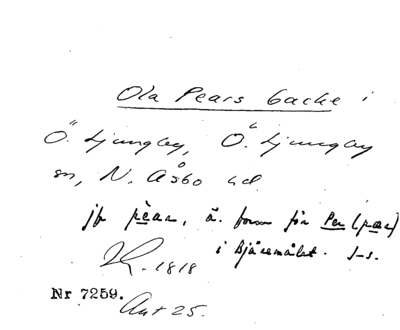 Ola Pears backe i
Ö. Ljungby, Ö. Ljungby
sn, N. Åsbo hd.
jfr pèar, ä. form för Per (pær)
i Bjäremålet. J-s.
1818
Nr 7259.
Ant 25.